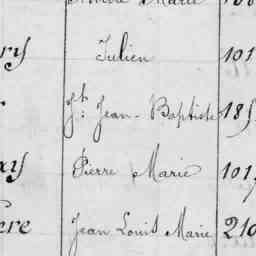 Marie
Julien 101
Jh Jean-Baptiste 185
Pierre Marie 101
ere Jean Louis Marie 210